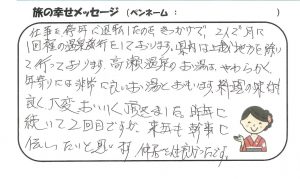 旅の幸せメッセージ (ペンネーム: )
仕事を停年で退職したのをきっかけで、2人で月に
1回程の温泉旅行をしております。県内は上越地方を除い
て行っております。高瀬温泉のお湯は、やわらかく
年寄りには非常に良いお湯とおもいます。料理の味が
良く、大変おいしく頂きました。昨年に
続いて2回目ですが、来年も幹事に
伝えしたいと思います。仲居さん